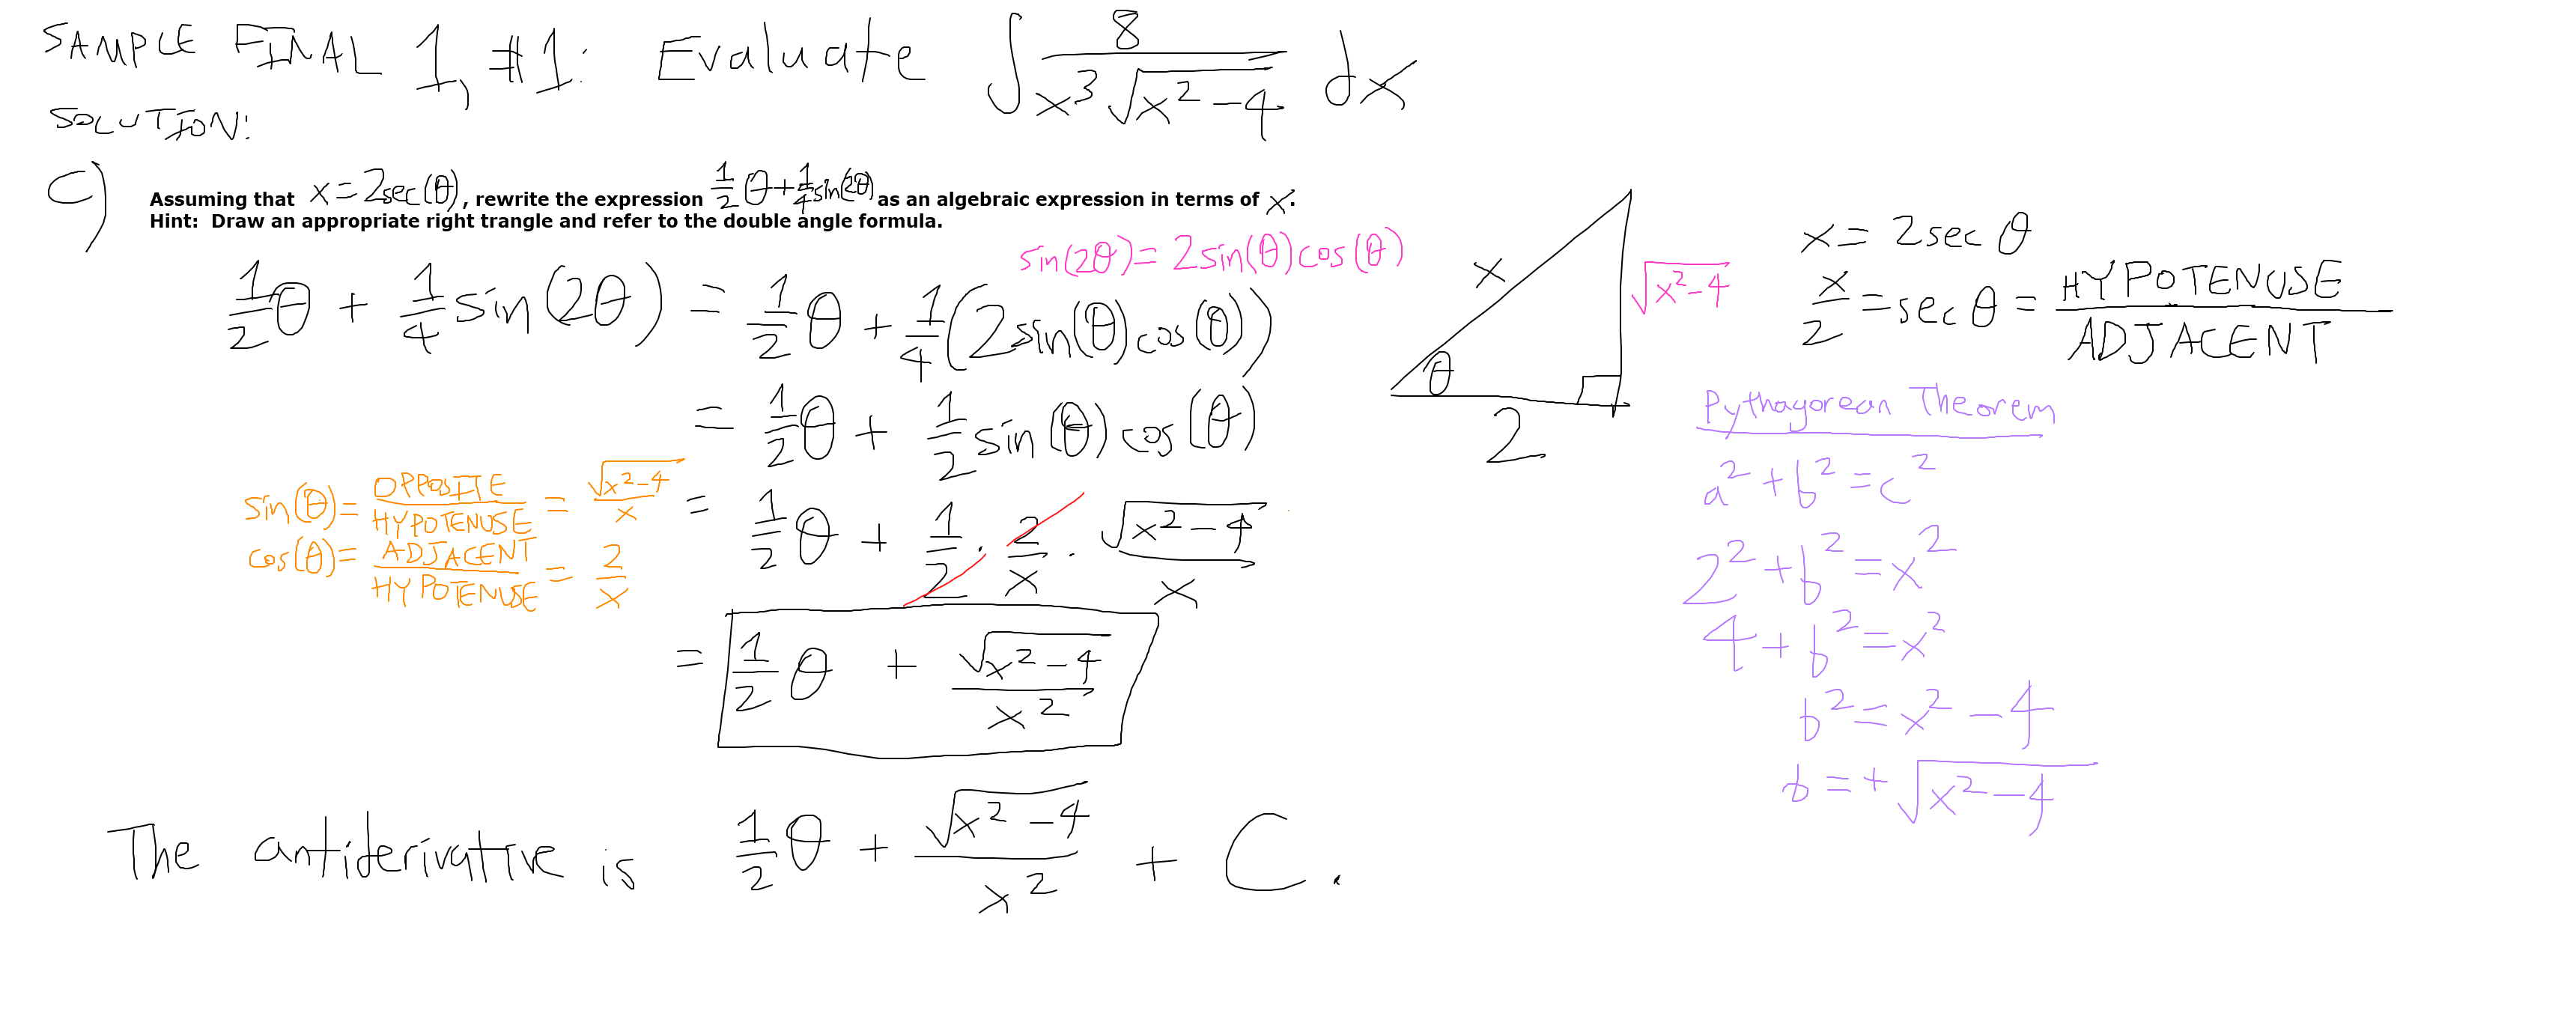 SAMPLE FINAL 1, #1: Evaluate ∫ 8/(x³√(x²-4)) dx
SOLUTION:
C) Assuming that x=2sec(θ), rewrite the expression 1/2 θ+1/4 sin(2θ) as an algebraic expression in terms of x.
Hint: Draw an appropriate right trangle and refer to the double angle formula.
sin(2θ)=2sin(θ)cos(θ)
1/2 θ + 1/4 sin(2θ) = 1/2 θ + 1/4(2sin(θ)cos(θ))
= 1/2 θ + 1/2 sin(θ)cos(θ)
sin(θ)= OPPOSITE/HYPOTENUSE = √(x²-4)/x
cos(θ)= ADJACENT/HYPOTENUSE = 2/x
= 1/2 θ + 1/2 · 2/x · √(x²-4)/x
= 1/2 θ + √(x²-4)/x²
The antiderivative is 1/2 θ + √(x²-4)/x² + C.
x
√(x²-4)
θ
2
x = 2sec θ
x/2 = sec θ = HYPOTENUSE/ADJACENT
Pythagorean Theorem
a²+b²=c²
2²+b²=x²
4+b²=x²
b²=x²-4
b=+√(x²-4)